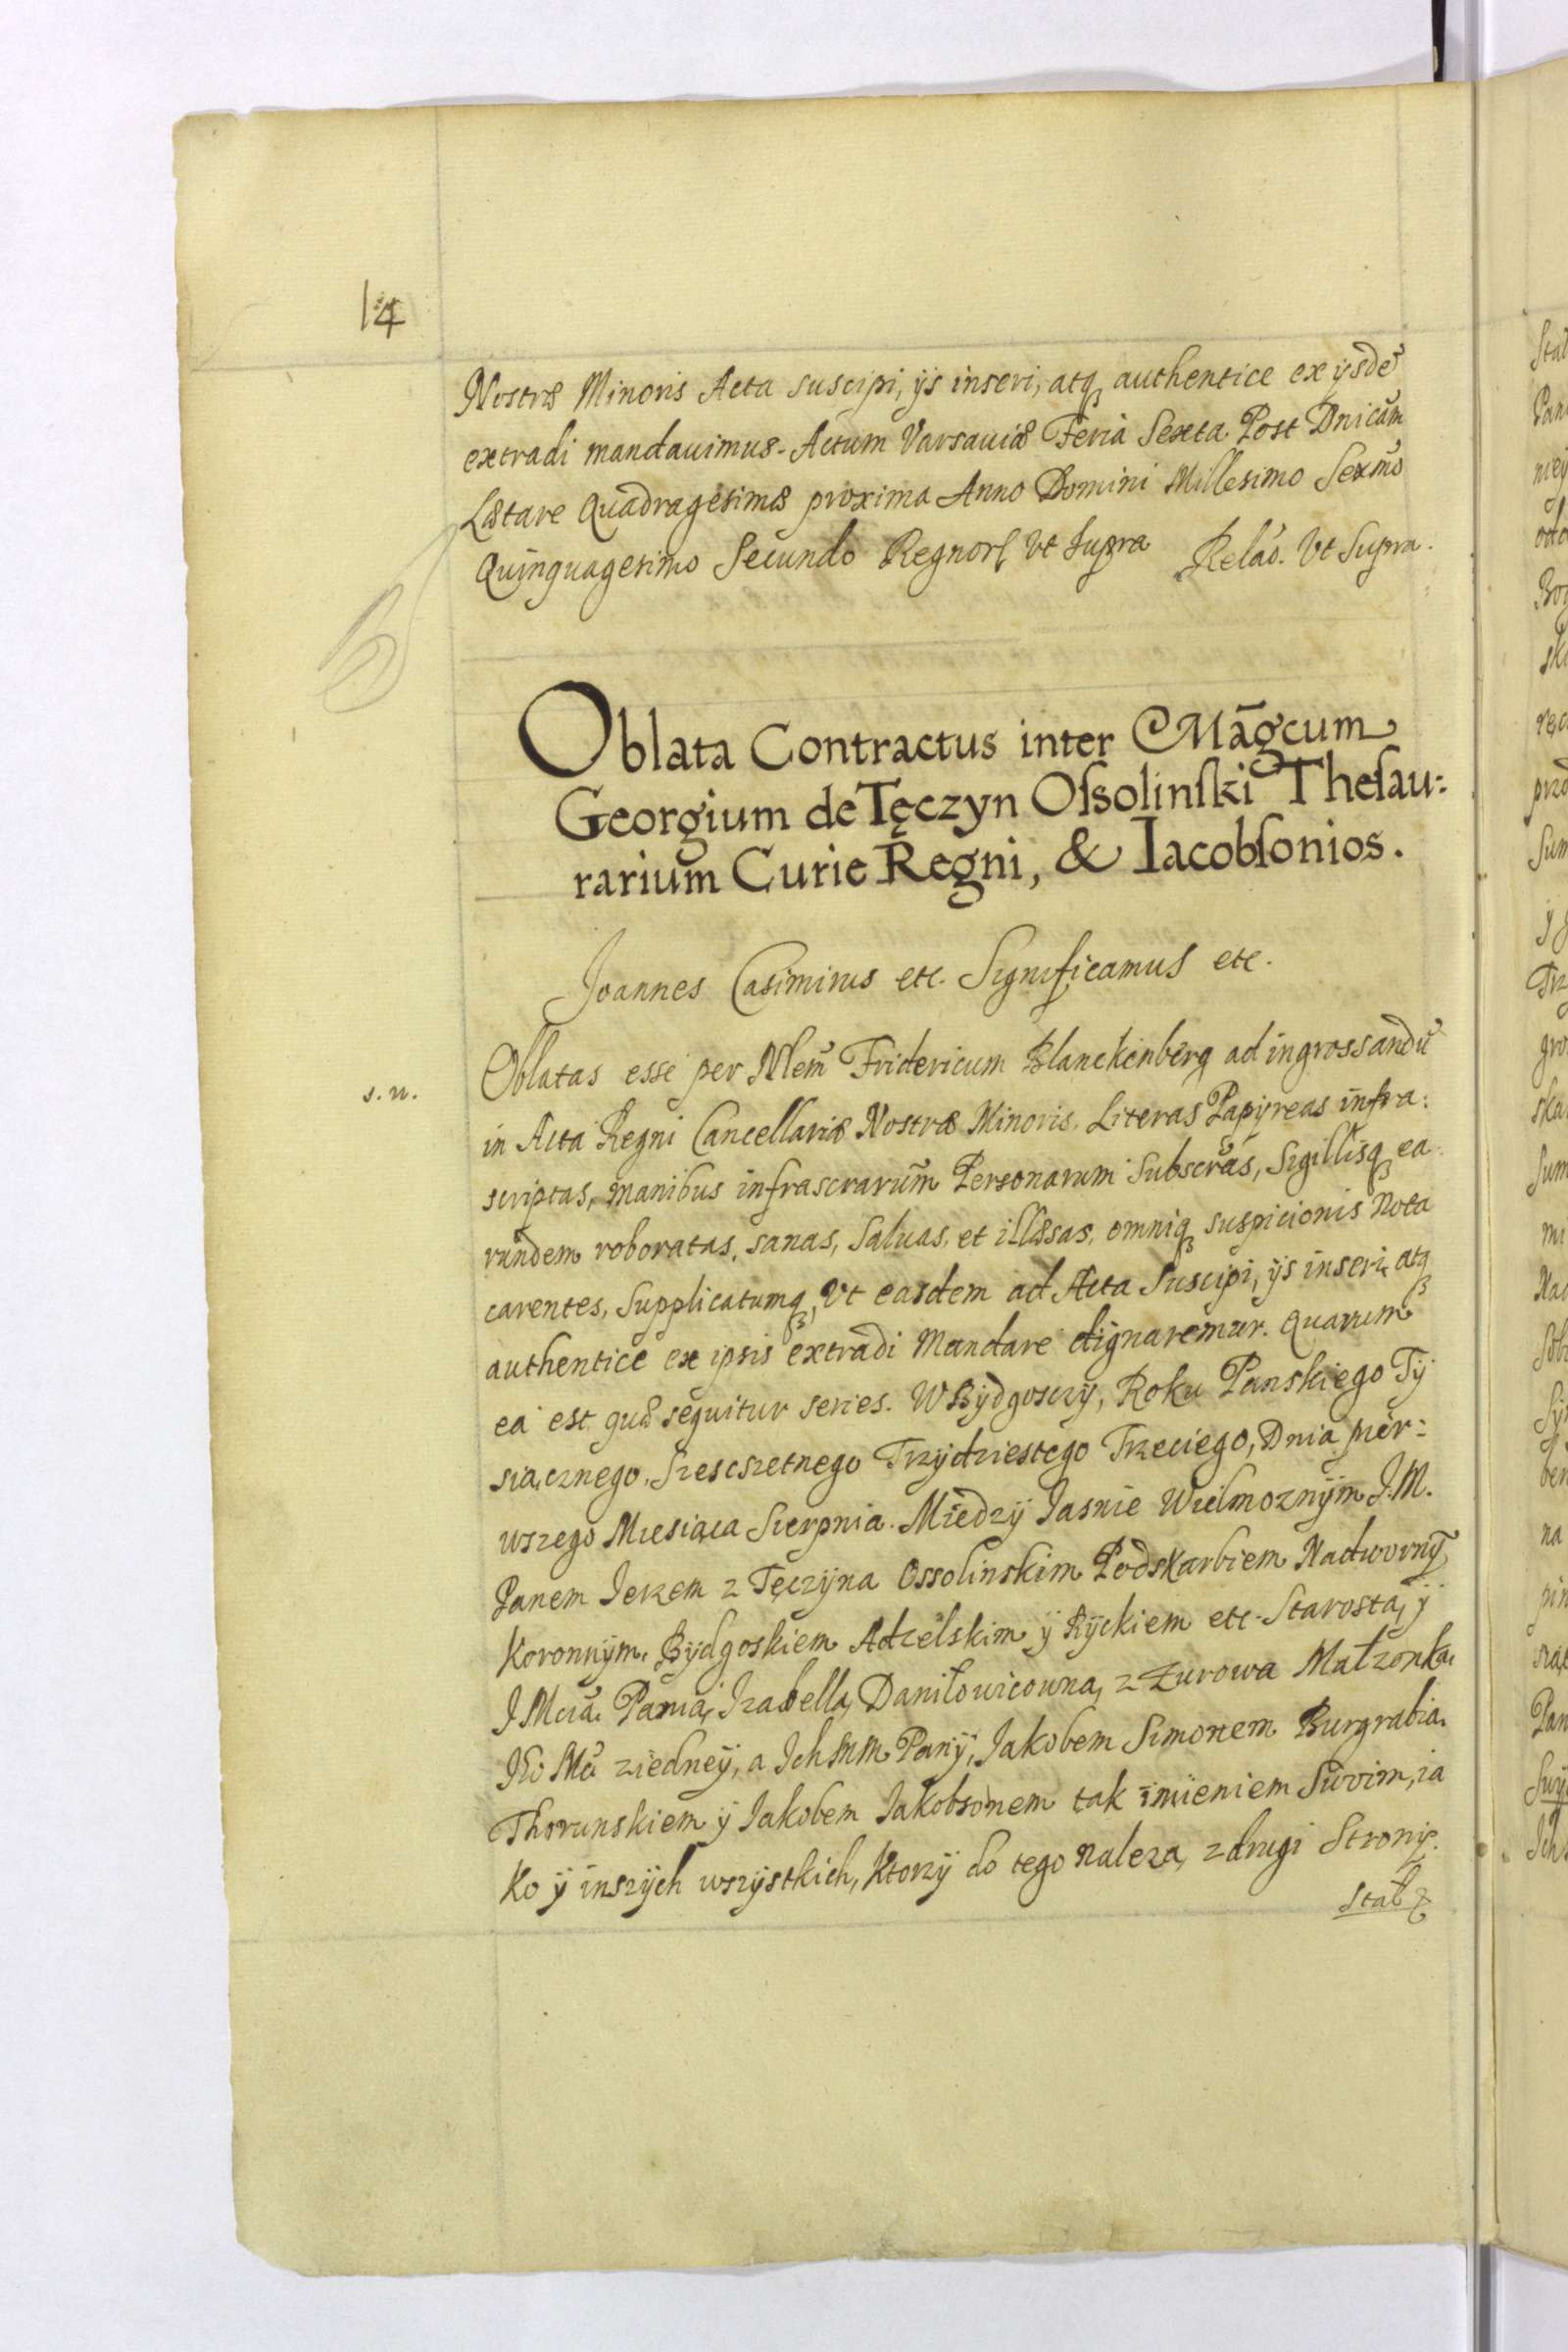 14
Nostræ Minoris Acta suscipi, ijs inseri, atq3 authentice ex ijsdē
extradi mandauimus. Actum Varsauiæ Feria Sexta Post Dnicam
Lætare Quadragesimæ proxima Anno Domini Millesimo Sexmo
Quinquagesimo Secundo Regnor̄ vt supra Relão. Vt Supra.
Oblata Contractus inter Māgcum
Georgium de Tęczyn Oſsolinſki Theſau:
rarium Curie Regni, & Iacobſonios.
Joannes Casimirus etc. Significamus etc.
s. n.
Oblatas esse per Nlem̄ Fridericum Blanckenberg ad ingrossandū
in Acta Regni Cancellariæ Nostræ Minoris. Literas Papyreas infra:
scriptas, manibus infrascrarum̄ Personarum Subscrās, Sigillisq3 ea:
rundem roboratas, sanas, saluas, et illæsas, omniq3 suspicionis nota
carentes, Supplicatumq3, Vt easdem ad Acta Suscipi, ijs inseri, atq3
authentice ex ipsis extradi Mandare dignaremur. Quarum
ea est quæ sequitur series. W Bÿdgosczÿ, Roku Panskiego Tÿ
siącznego, Szescsetnego Trzÿdziestego Trzeciego, Dnia pier:
wszego Miesiąca Sierpnia. Miedzÿ Jasnie Wielmoznÿm J. M.
Panem Jerzem z Tęczÿna Ossolinskim Podskarbiem Nadwornÿ
Koronnÿm. Bÿdgoskiem Adzelskim ÿ Rÿckiem etc. Starostą, ÿ
J Mcią Panią, Izabellą Daniłowicowną, z Zurowa Małzonką
JKo Mči ziedneÿ, a Jch MM Panÿ, Jakobem Simonem Burgrabią
Thorunskiem ÿ Jakobem Jakobsonem tak imieniem Swoim, ia
ko ÿ inszÿch wszÿstkich, Ktorzÿ do tego nalezą, z drugi Stronÿ.
Stał